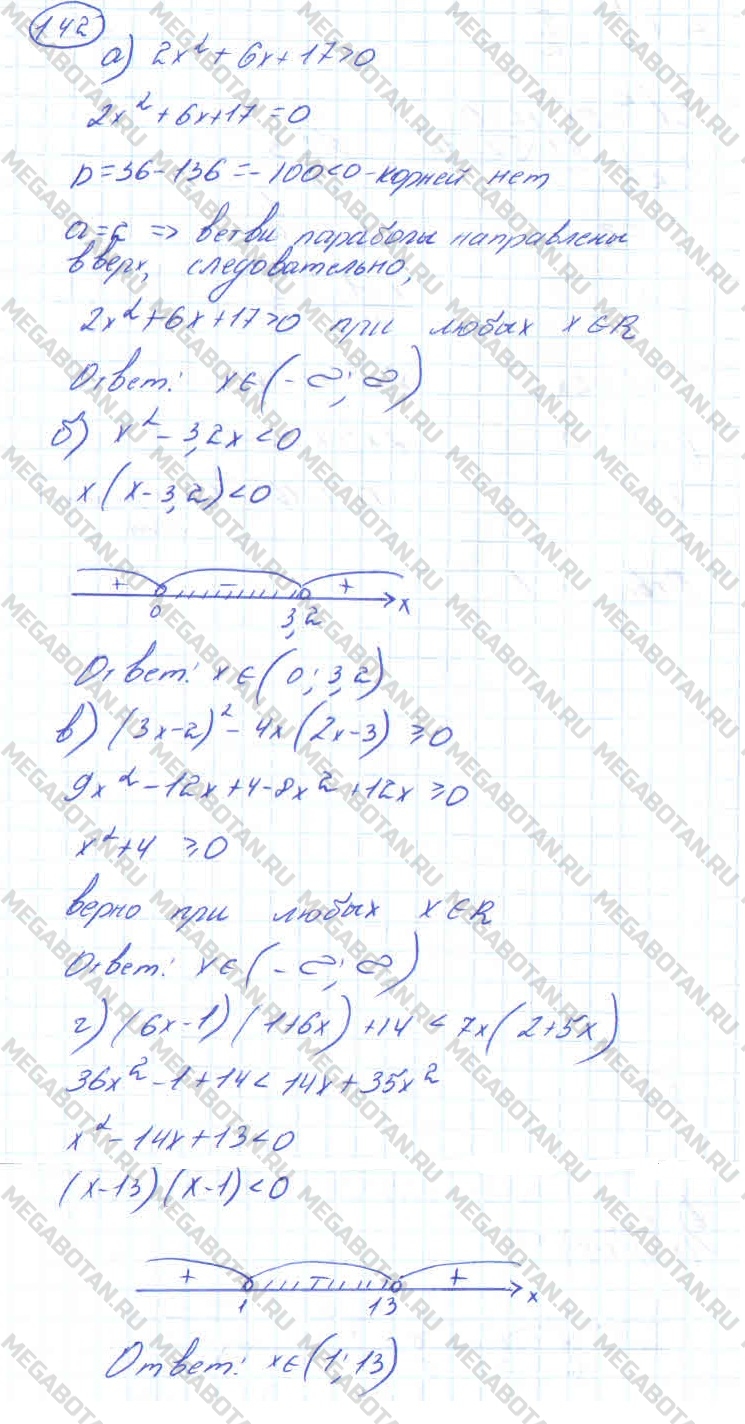 142
а) 2x² + 6x + 17 > 0
2x² + 6x + 17 = 0
D = 36 - 136 = -100 < 0 - корней нет
a = 2 => ветви параболы направлены
вверх, следовательно,
2x² + 6x + 17 > 0 при любых x ∈ R
Ответ: x ∈ (-∞; ∞)
б) x² - 3,2x < 0
x(x - 3,2) < 0
+ - +
0 3,2 x
Ответ: x ∈ (0; 3,2)
в) (3x - 2)² - 4x(2x - 3) ≥ 0
9x² - 12x + 4 - 8x² + 12x ≥ 0
x² + 4 ≥ 0
верно при любых x ∈ R
Ответ: x ∈ (-∞; ∞)
г) (6x - 1)(1 + 6x) + 14 < 7x(2 + 5x)
36x² - 1 + 14 < 14x + 35x²
x² - 14x + 13 < 0
(x - 13)(x - 1) < 0
+ - +
1 13 x
Ответ: x ∈ (1; 13)
MEGABOTAN.RU